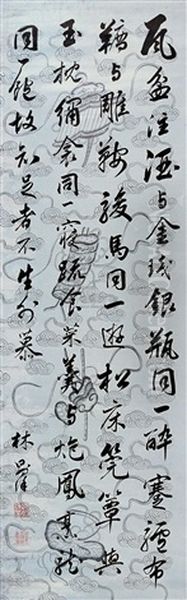 瓦盆注酒与金琖銀瓶同一醉蹇驢布
韉与雕鞍駿馬同一遊松床莞簟與
玉枕繡衾同一寢疏食菜羹与炮鳳烹龍
同一飽故知足者不生外慕
林